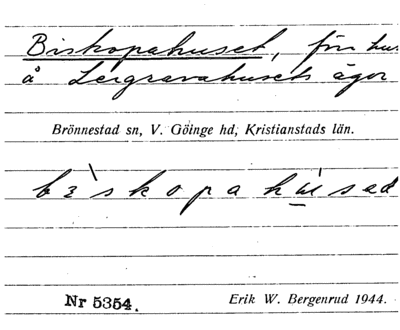 Biskopahuset, förr hus
å Lergravahusets ägor
Brönnestad sn, V. Göinge hd, Kristianstads län.
Nr 5354.
Erik W. Bergenrud 1944.